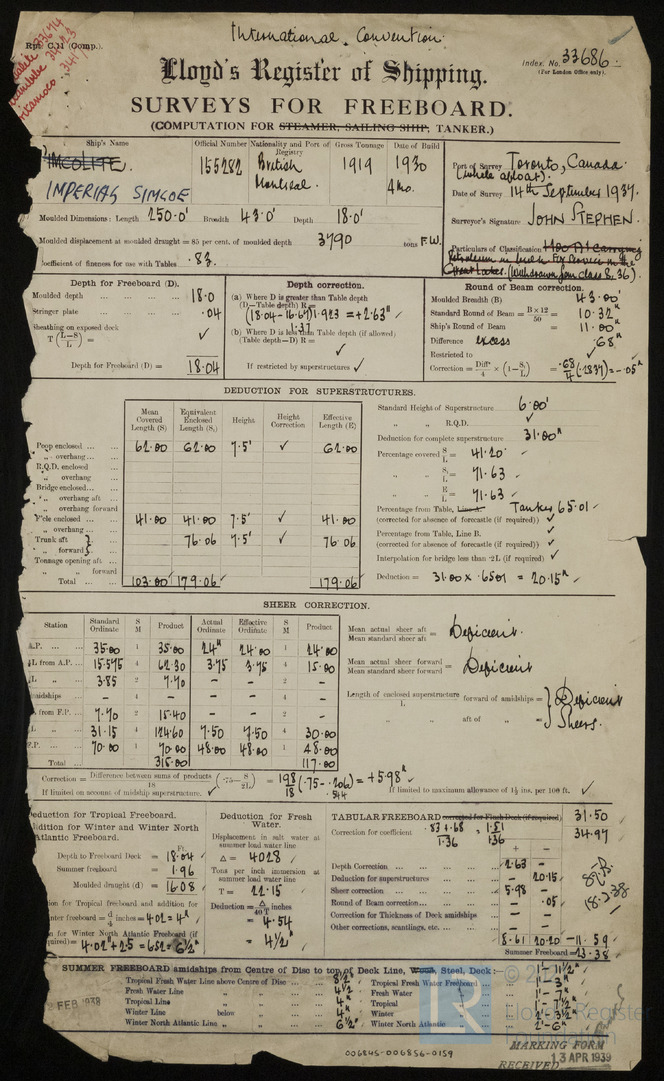 International Convention
Rpt. C.11 (Comp.)
Index. No. 33686
(For London Office only).
Lloyd's Register of Shipping.
SURVEYS FOR FREEBOARD.
(COMPUTATION FOR STEAMER, SAILING SHIP, TANKER.)
Ship's Name
Official Number
Nationality and Port of Registry
Gross Tonnage
Date of Build
IMPERIAL SIMCOE
155282
British
Montreal
1919
1930
4 mo.
Port of Survey Toronto, Canada.
(whole afloat).
Date of Survey 14th September 1937.
Surveyor's Signature JOHN STEPHEN.
Particulars of Classification
Petroleum in bulk For Service in the
Great Lakes. (Withdrawn from class 8.36).
Moulded Dimensions: Length 250.0' Breadth 43.0' Depth 18.0'
Moulded displacement at moulded draught = 85 per cent. of moulded depth 3790 tons F.W.
Coefficient of fineness for use with Tables .83
Depth for Freeboard (D).
Moulded depth 18.0
Stringer plate .04
Sheathing on exposed deck
T (L-S/L) =
Depth for Freeboard (D) = 18.04
Depth correction.
(a) Where D is greater than Table depth
(D-Table depth) R =
(18.04-16.67) 1.923 = +2.63"
1.37
(b) Where D is less than Table depth (if allowed)
(Table depth-D) R =
If restricted by superstructures
Round of Beam correction.
Moulded Breadth (B) 43.00'
Standard Round of Beam = B×12/50 = 10.32"
Ship's Round of Beam = 11.00"
Difference excess .68"
Restricted to
Correction = Diffce/4 × (1-S1/L) = .68/4 (.2837) = -.05"
DEDUCTION FOR SUPERSTRUCTURES.
Mean Covered Length (S)
Equivalent Enclosed Length (S1)
Height
Height Correction
Effective Length (E)
Poop enclosed 62.00 62.00 7.5' ✓ 62.00
„ overhang
R.Q.D. enclosed
„ overhang
Bridge enclosed
„ overhang aft
„ overhang forward
F'cle enclosed 41.00 41.00 7.5' ✓ 41.00
„ overhang
Trunk aft 76.06 7.5' ✓ 76.06
„ forward
Tonnage opening aft
„ „ forward
Total 103.00 179.06 179.06
Standard Height of Superstructure 6.00'
„ „ R.Q.D.
Deduction for complete superstructure 31.00"
Percentage covered S/L = 41.20
„ „ S1/L = 71.63
„ „ E/L = 71.63
Percentage from Table, Line A. Tanker 65.01
(corrected for absence of forecastle (if required))
Percentage from Table, Line B.
(corrected for absence of forecastle (if required))
Interpolation for bridge less than .2L (if required)
Deduction = 31.00 x .6501 = 20.15"
SHEER CORRECTION.
Station
Standard Ordinate
S M
Product
Actual Ordinate
Effective Ordinate
S M
Product
A.P. 35.00 1 35.00 24" 24.00 1 24.00
L from A.P. 15.575 4 62.30 3.75 3.75 4 15.00
L „ 3.85 2 7.70 - - 2 -
Amidships - 4 - - - 4 -
from F.P. 7.70 2 15.40 - - 2 -
L „ 31.15 4 124.60 7.50 7.50 4 30.00
F.P. 70.00 1 70.00 48.00 48.00 1 48.00
Total 315.00 117.00
Mean actual sheer aft
Mean standard sheer aft = Deficient.
Mean actual sheer forward
Mean standard sheer forward = Deficient
Length of enclosed superstructure forward of amidships = Deficient
L
„ „ aft of „ = Sheers.
Correction = Difference between sums of products/18 (.75 - S/2L) = 198/18 (.75 - .206) = +5.98"
.544
If limited on account of midship superstructure.
If limited to maximum allowance of 1½ ins. per 100 ft.
Deduction for Tropical Freeboard.
Addition for Winter and Winter North Atlantic Freeboard.
Ft.
Depth to Freeboard Deck = 18.04
Summer freeboard = 1.96
Moulded draught (d) = 16.08
Deduction for Tropical Freeboard and addition for
Winter freeboard = d/4 inches = 4.02 = 4"
Addition for Winter North Atlantic Freeboard (if
required) = 4.02 + 2.5 = 6.52 = 6½"
Deduction for Fresh Water.
Displacement in salt water at summer load water line
Δ = 4028
Tons per inch immersion at summer load water line
T = 22.15
Deduction = Δ/40T
= 4.54
= 4½"
TABULAR FREEBOARD corrected for Flush Deck (if required) 31.50
Correction for coefficient .83+.68/1.36 1.51/1.36 34.97
+ -
Depth Correction 2.63 -
Deduction for superstructures - 20.15
Sheer correction 5.98 -
Round of Beam correction - .05
Correction for Thickness of Deck amidships - -
Other corrections, scantlings, etc. - -
8.61 20.20 -11.59
Summer Freeboard = 23.38
SUMMER FREEBOARD amidships from Centre of Disc to top of Deck Line, Wood, Steel, Deck:- 1'-11½"
Tropical Fresh Water Line above Centre of Disc 8½"
Fresh Water Line „ „ 4½"
Tropical Line „ „ 4"
Winter Line below „ „ 4"
Winter North Atlantic Line „ „ 6½"
Tropical Fresh Water Freeboard 1'-3"
Fresh Water „ 1'-7"
Tropical „ 1'-7½"
Winter „ 2'-3½"
Winter North Atlantic „ 2'-6"
FEB 1938
MARKING FORM
RECEIVED 13 APR 1939
006845-006856-0159
Lloyd's Register
Foundation